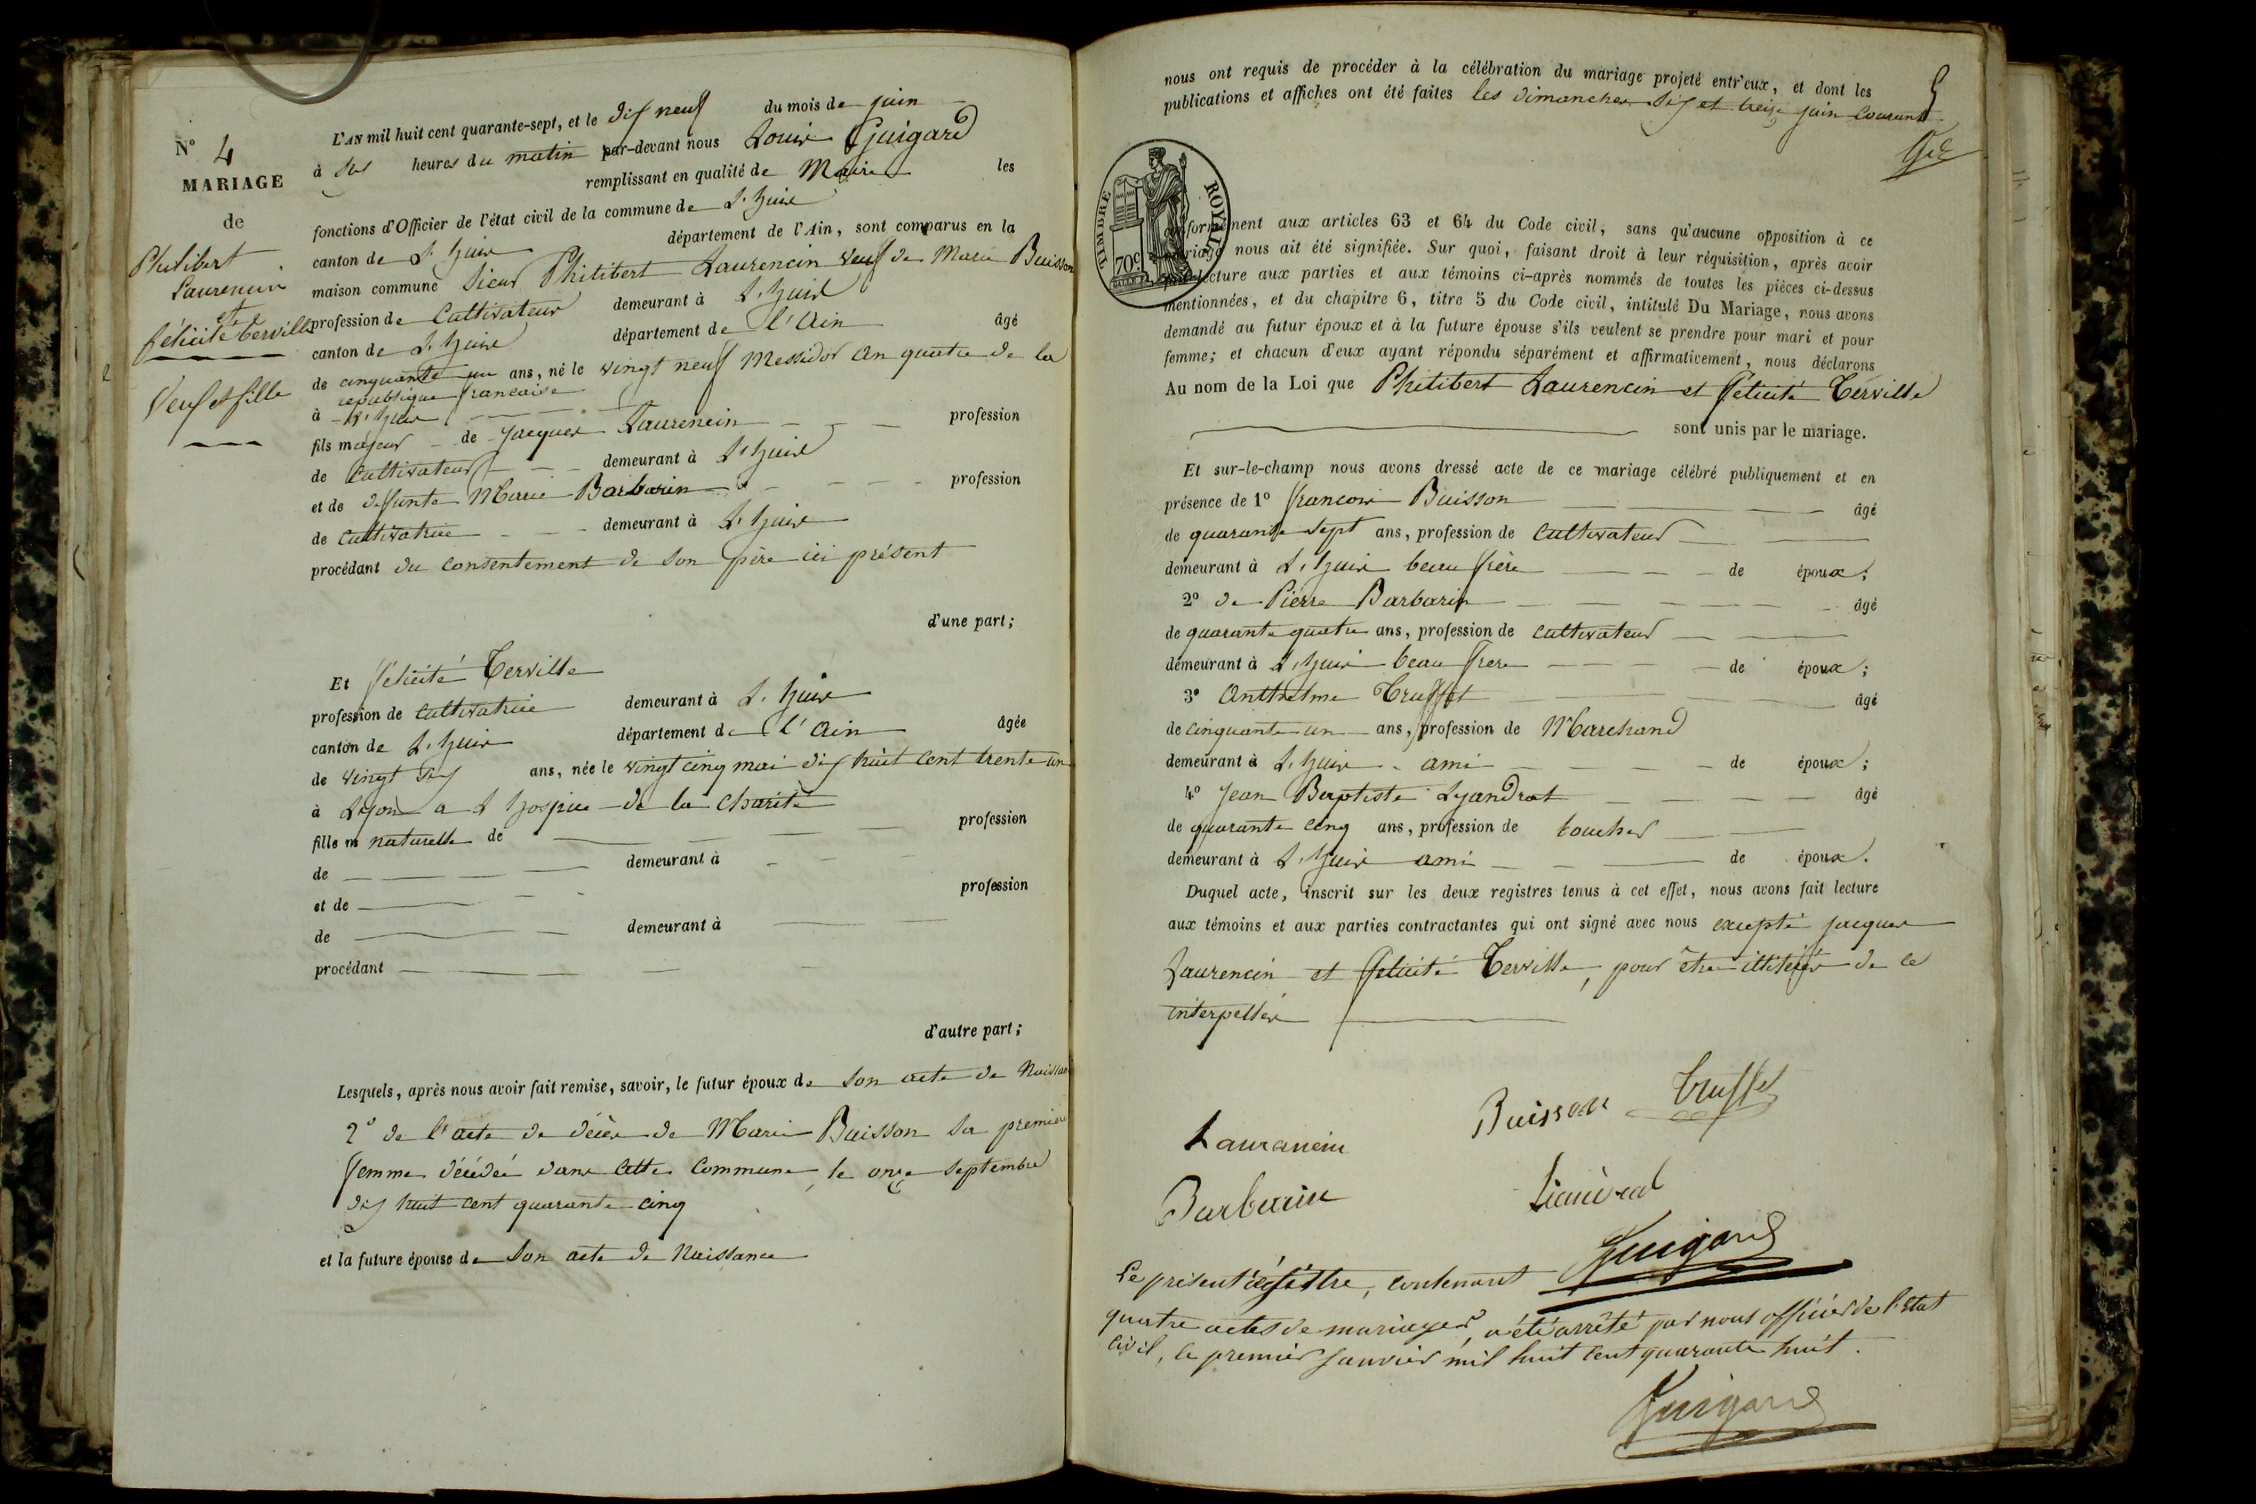 N° 4
MARIAGE
de
Philibert
Laurencin
et
félicité Terville
Veuf et fille
L'AN mil huit cent quarante-sept, et le dix neuf du mois de juin
à six heures du matin par-devant nous Louis Guigard
remplissant en qualité de Maire les
fonctions d'Officier de l'état civil de la commune de
canton de département de l'Ain, sont comparus en la
maison commune Sieur Philibert Laurencin veuf de Marie Buisson
profession de Cultivateur demeurant à
canton de département de l'Ain âgé
de cinquante un ans, né le vingt neuf Messidor an quatre de la
republique francaise
à
fils majeur de Jacques Laurencin profession
de Cultivateur demeurant à
et de defunte Marie Barbarin profession
de Cultivatrice demeurant à
procédant du consentement de son père ici présent
d'une part;
Et félicité Terville
profession de cultivatrice demeurant à
canton de département de l'Ain âgée
de vingt six ans, née le vingt cinq mai dix huit cent trente un
à Lyon a L'hospice de la Charité
fille m naturelle de profession
de demeurant à
et de profession
de demeurant à
procédant
d'autre part;
Lesquels, après nous avoir fait remise, savoir, le futur époux de son acte de Naissance
2° de l'acte de décès de Marie Buisson sa premiere
femme décédée dans cette Commune, le onze septembre
dix huit cent quarante cinq
et la future épouse de son acte de Naissance
nous ont requis de procéder à la célébration du mariage projeté entr'eux, et dont les
publications et affiches ont été faites les dimanches six et treize juin courant
5
TIMBRE ROYAL
70c
conformément aux articles 63 et 64 du Code civil, sans qu'aucune opposition à ce
mariage nous ait été signifiée. Sur quoi, faisant droit à leur réquisition, après avoir
fait lecture aux parties et aux témoins ci-après nommés de toutes les pièces ci-dessus
mentionnées, et du chapitre 6, titre 5 du Code civil, intitulé Du Mariage, nous avons
demandé au futur époux et à la future épouse s'ils veulent se prendre pour mari et pour
femme; et chacun d'eux ayant répondu séparément et affirmativement, nous déclarons
Au nom de la Loi que Philibert Laurencin et félicité Terville
sont unis par le mariage.
Et sur-le-champ nous avons dressé acte de ce mariage célébré publiquement et en
présence de 1° francois Buisson âgé
de quarante sept ans, profession de Cultivateur
demeurant à beau frère de époux;
2° de Pierre Barbarin âgé
de quarante quatre ans, profession de cultivateur
demeurant à beau frere de époux;
3° Anthelme Truffet âgé
de cinquante un ans, profession de Marchand
demeurant à ami de époux;
4° Jean Baptiste Lyandrat âgé
de quarante cinq ans, profession de boucher
demeurant à ami de époux.
Duquel acte, inscrit sur les deux registres tenus à cet effet, nous avons fait lecture
aux témoins et aux parties contractantes qui ont signé avec nous excepté Jacques
Laurencin et félicité Terville, pour être illiterés de ce
interpellés
Laurancin
Buisson
Truffet
Barbarin
Guigard
Le présent régistre, contenant
quatre actes de mariages, a été arrêté par nous officier de l'Etat
civil, le premier Janvier mil huit cent quarante huit.
Guigard